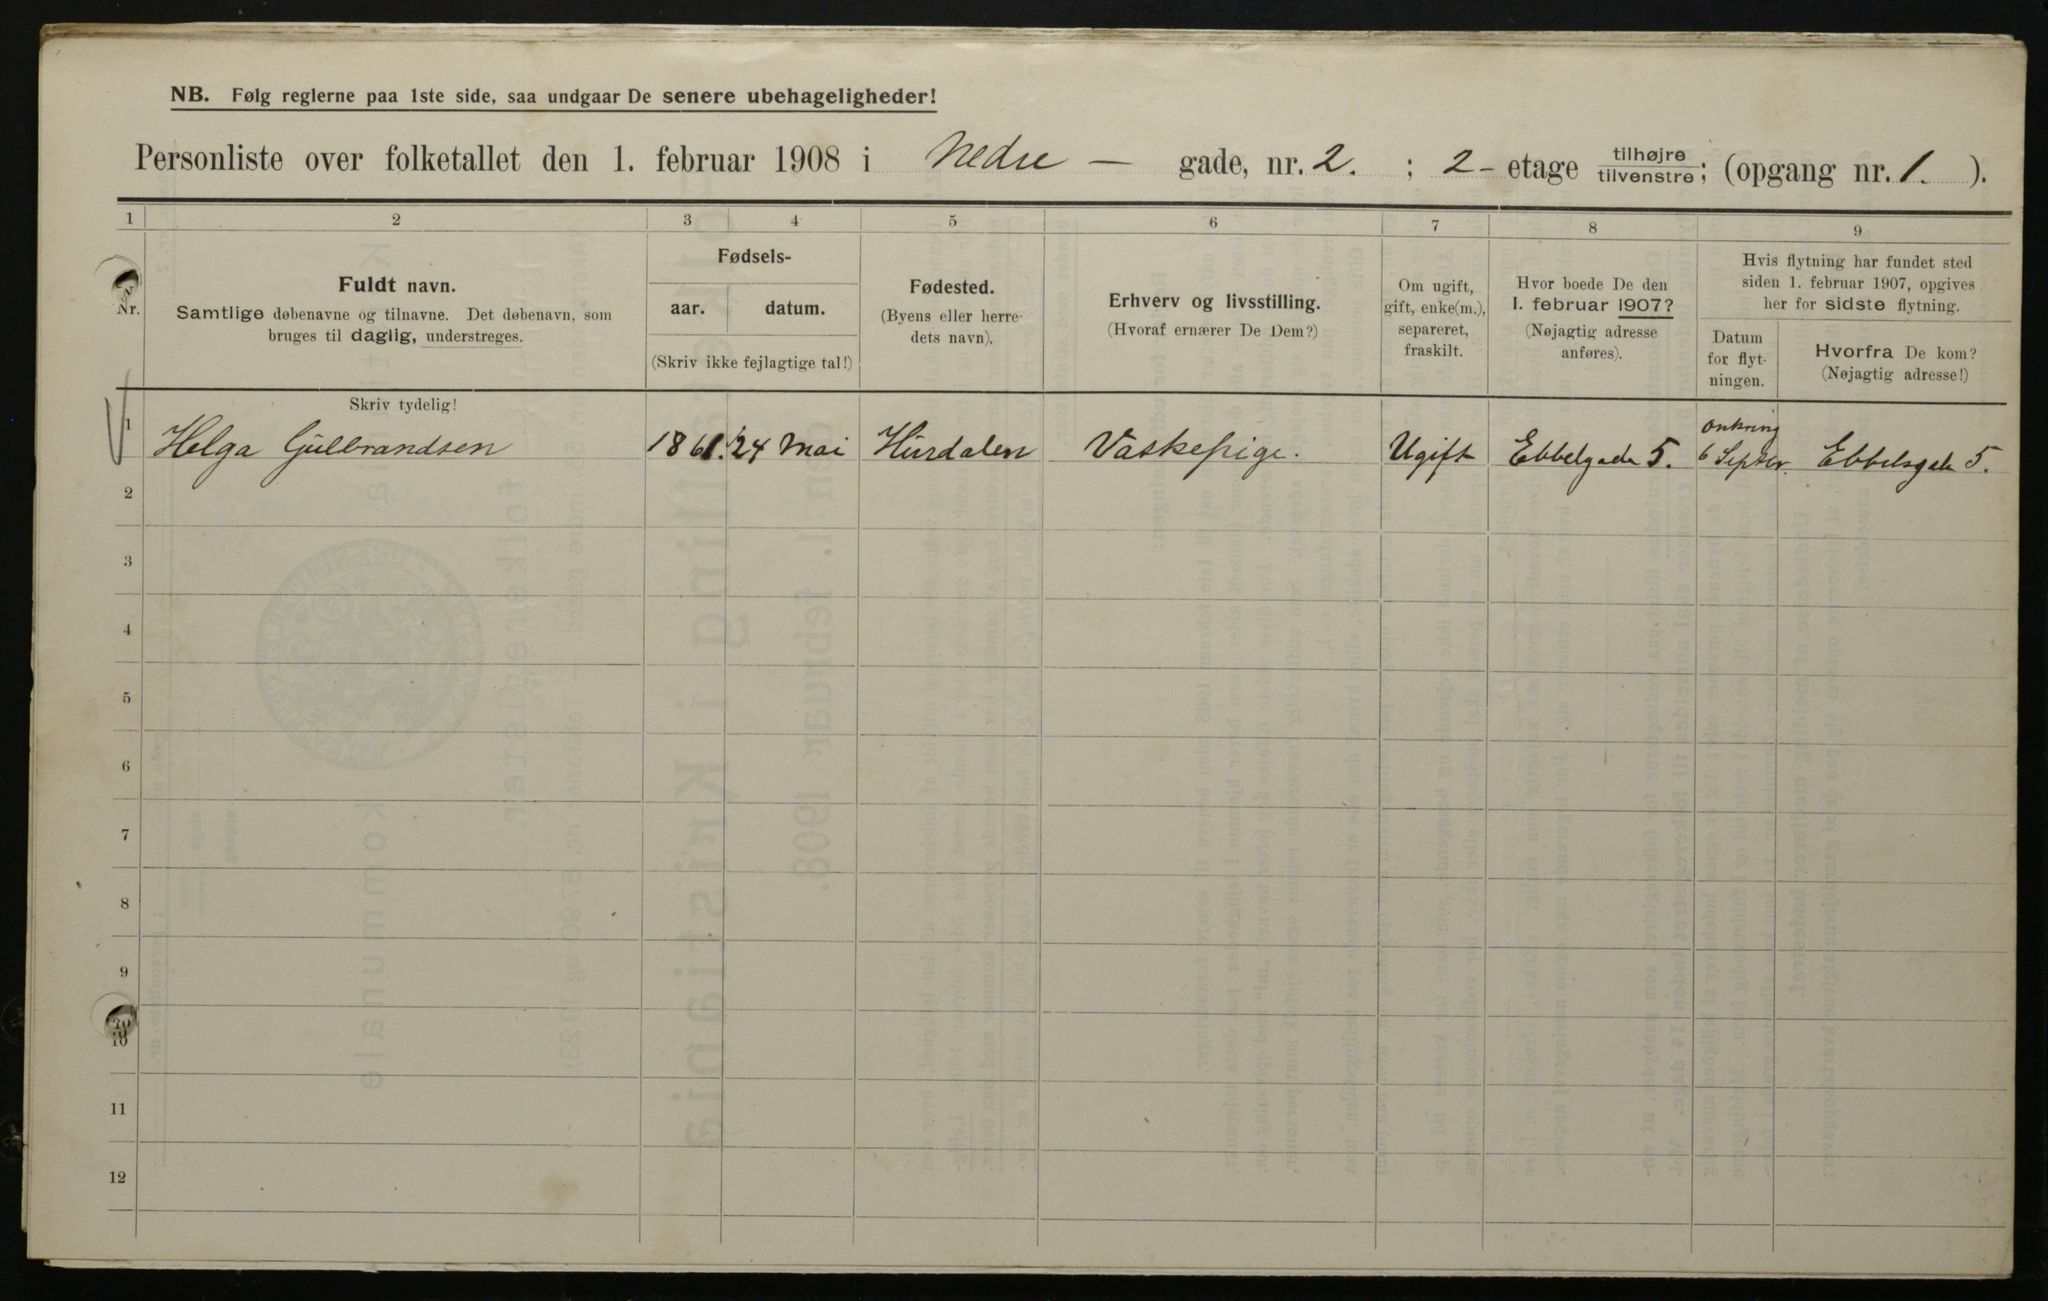 NB. Følg reglerne paa 1ste side, saa undgaar De senere ubehageligheder!
Personliste over folketallet den 1. februar 1908 i Nedre — gade, nr. 2. ; 2 - etage tilhøjre tilvenstre; (opgang nr. 1. ).
1 2 3 4 5 6 7 8 9
Nr.
Fuldt navn.
Samtlige døbenavne og tilnavne. Det døbenavn, som
bruges til daglig, understreges.
Skriv tydelig!
Fødsels-
aar. datum.
(Skriv ikke fejlagtige tal!)
Fødested.
(Byens eller herre-
dets navn).
Erhverv og livsstilling.
(Hvoraf ernærer De Dem?)
Om ugift,
gift, enke(m.),
separeret,
fraskilt.
Hvor boede De den
1. februar 1907?
(Nøjagtig adresse
anføres).
Hvis flytning har fundet sted
siden 1. februar 1907, opgives
her for sidste flytning.
Datum
for flyt-
ningen.
Hvorfra De kom?
(Nøjagtig adresse!)
1 Helga Gulbrandsen 1861. 24 Mai Hurdalen Vaskepige. Ugift Ebbelgade 5. omkring 6 Septbr. Ebbelsgade 5.
2
3
4
5
6
7
8
9
10
11
12